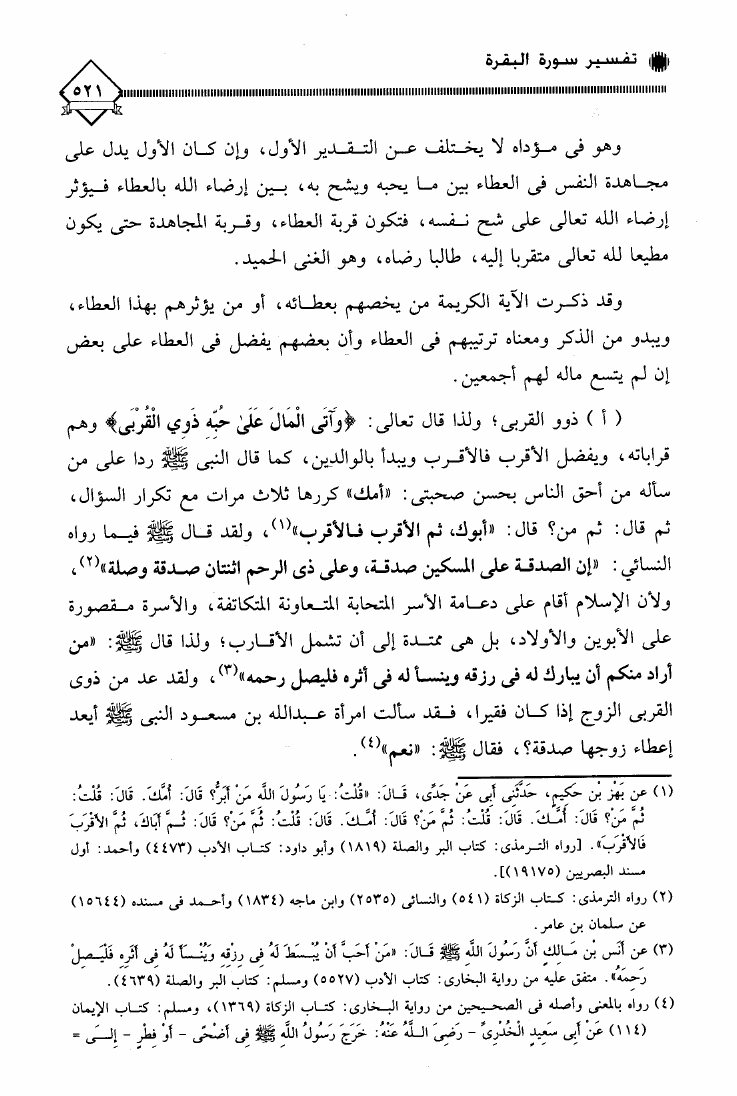 تفسير سورة البقرة
٥٢١
وهو فى مؤداه لا يختلف عن التقدير الأول، وإن كان الأول يدل على
مجاهدة النفس فى العطاء بين ما يحبه ويشح به، بين إرضاء الله بالعطاء فيؤثر
إرضاء الله تعالى على شح نفسه، فتكون قربة العطاء، وقربة المجاهدة حتى يكون
مطيعا لله تعالى متقربا إليه، طالبا رضاه، وهو الغنى الحميد.
وقد ذكرت الآية الكريمة من يخصهم بعطائه، أو من يؤثرهم بهذا العطاء،
ويبدو من الذكر ومعناه ترتيبهم فى العطاء وأن بعضهم يفضل فى العطاء على بعض
إن لم يتسع ماله لهم أجمعين.
( أ ) ذوو القربى؛ ولذا قال تعالى: ﴿وَآتَى الْمَالَ عَلَىٰ حُبِّهِ ذَوِي الْقُرْبَىٰ﴾ وهم
قراباته، ويفضل الأقرب فالأقرب ويبدأ بالوالدين، كما قال النبى ﷺ ردا على من
سأله من أحق الناس بحسن صحبتى: «أمك» كررها ثلاث مرات مع تكرار السؤال،
ثم قال: ثم من؟ قال: «أبوك، ثم الأقرب فالأقرب»(١)، ولقد قال ﷺ فيما رواه
النسائي: «إن الصدقة على المسكين صدقة، وعلى ذى الرحم اثنتان صدقة وصلة»(٢)،
ولأن الإسلام أقام على دعامة الأسر المتحابة المتعاونة المتكاتفة، والأسرة مقصورة
على الأبوين والأولاد، بل هى ممتدة إلى أن تشمل الأقارب؛ ولذا قال ﷺ: «من
أراد منكم أن يبارك له فى رزقه وينسأ له فى أثره فليصل رحمه»(٣)، ولقد عد من ذوى
القربى الزوج إذا كان فقيرا، فقد سألت امرأة عبدالله بن مسعود النبى ﷺ أيعد
إعطاء زوجها صدقة؟، فقال ﷺ: «نعم»(٤).
(١) عن بَهْزِ بْنِ حَكِيمٍ، حَدَّثَنِى أَبِى عَنْ جَدِّى، قَالَ: «قُلْتُ: يَا رَسُولَ اللَّهِ مَنْ أَبَرُّ؟ قَالَ: أُمَّكَ. قَالَ: قُلْتُ:
ثُمَّ مَنْ؟ قَالَ: أُمَّكَ. قَالَ: قُلْتُ: ثُمَّ مَنْ؟ قَالَ: أُمَّكَ. قَالَ: قُلْتُ: ثُمَّ مَنْ؟ قَالَ: ثُمَّ أَبَاكَ، ثُمَّ الأَقْرَبَ
فَالأَقْرَبَ». [رواه الترمذى: كتاب البر والصلة (١٨١٩) وأبو داود: كتاب الأدب (٤٤٧٣) وأحمد: أول
مسند البصريين (١٩١٧٥)].
(٢) رواه الترمذى: كتاب الزكاة (٥٤١) والنسائى (٢٥٣٥) وابن ماجه (١٨٣٤) وأحمد فى مسنده (١٥٦٤٤)
عن سلمان بن عامر.
(٣) عن أَنَسِ بْنِ مَالِكٍ أَنَّ رَسُولَ اللَّهِ ﷺ قَالَ: «مَنْ أَحَبَّ أَنْ يُبْسَطَ لَهُ فِى رِزْقِهِ وَيُنْسَأَ لَهُ فِى أَثَرِهِ فَلْيَصِلْ
رَحِمَهُ». متفق عليه من رواية البخارى: كتاب الأدب (٥٥٢٧) ومسلم: كتاب البر والصلة (٤٦٣٩).
(٤) رواه بالمعنى وأصله فى الصحيحين من رواية البخارى: كتاب الزكاة (١٣٦٩)، ومسلم: كتاب الإيمان
(١١٤) عَنْ أَبِى سَعِيدٍ الْخُدْرِىِّ - رَضِىَ اللَّهُ عَنْهُ: خَرَجَ رَسُولُ اللَّهِ ﷺ فِى أَضْحًى - أَوْ فِطْرٍ - إِلَى =